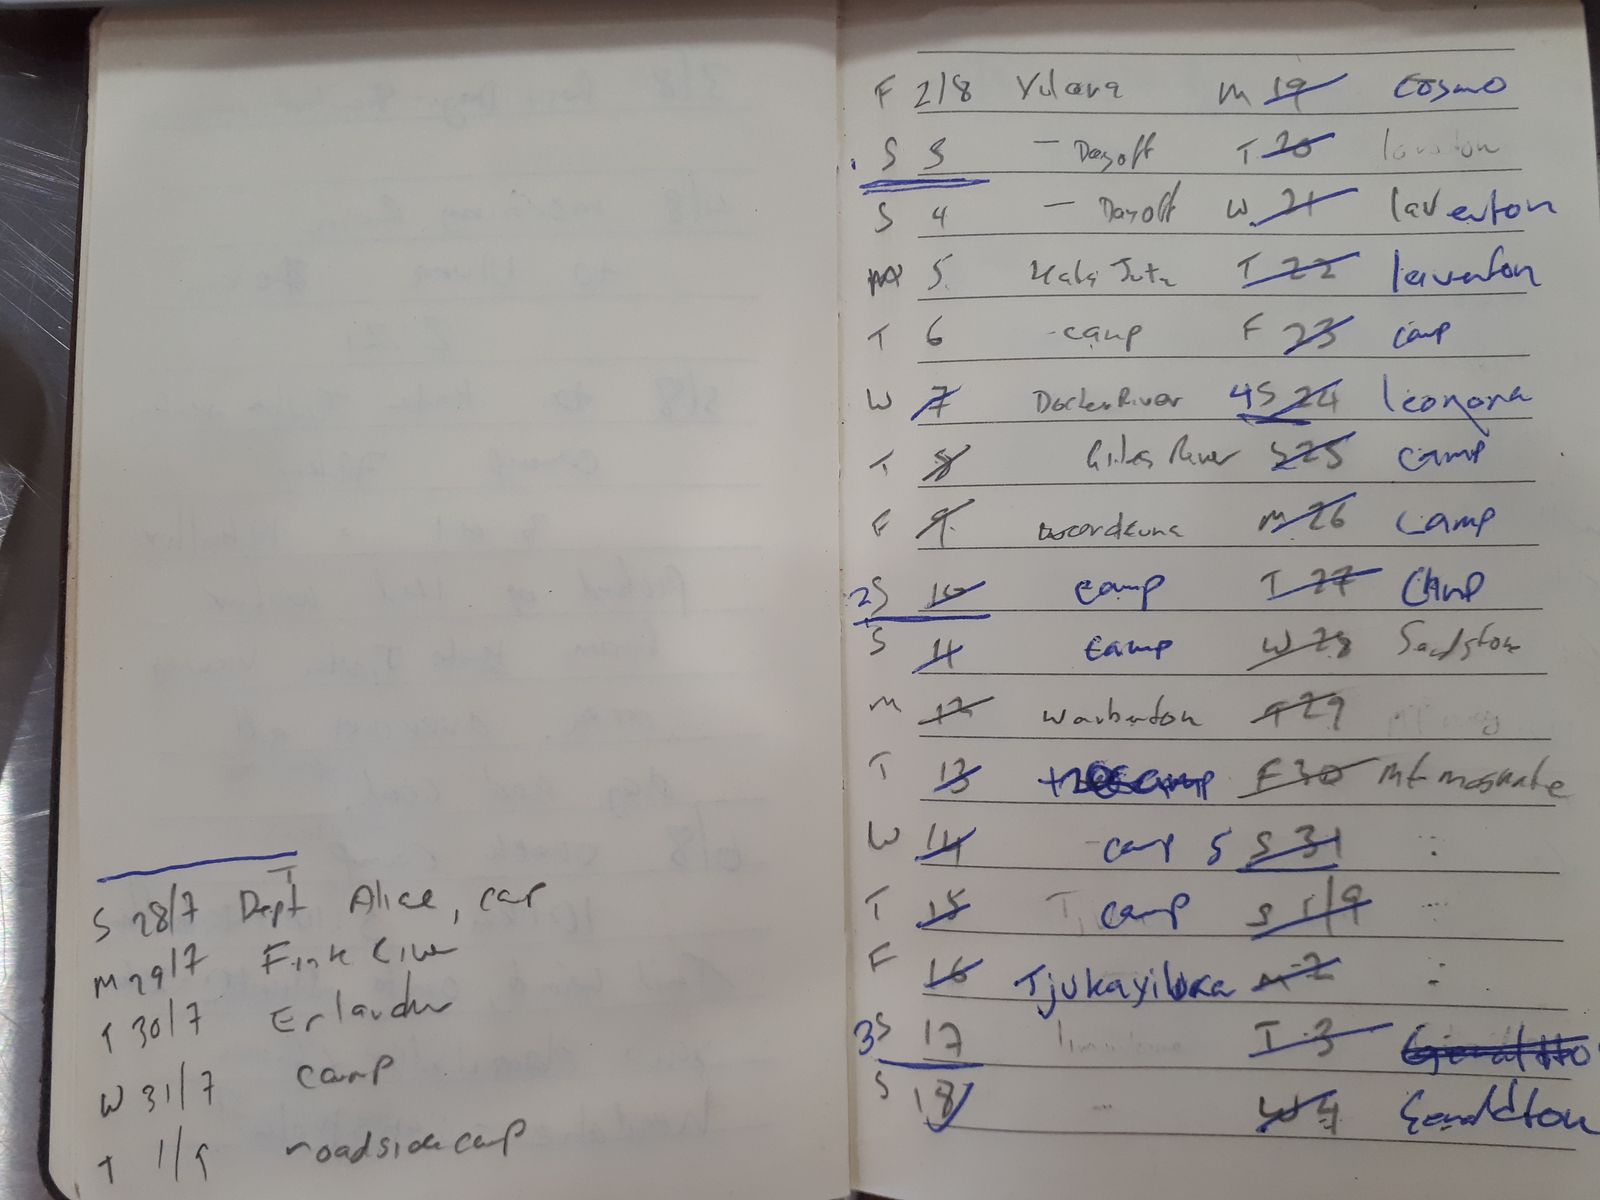 S 28/7 Dept Alice, cap
M 29/7 Fink River
T 30/7 Erlandur
W 31/7 camp
T 1/9 roadside camp
F 2/8 Yulara
S 3 - Dayoff
S 4 - Dayoff
M 5 Kata Juta
T 6 - camp
W 7 Docker River
T 8 Giles River
F 9
2S 10 camp
S 11 camp
M 12 Warburton
T 13 camp
W 14 - camp
T 15 camp
F 16 Tjukayirla
3S 17
S 18 -
M 19 Cosmo
T 20 laverton
W 21 laverton
T 22 laverton
F 23 camp
4S 24 leonora
S 25 camp
M 26 camp
T 27 camp
W 28 Sandstone
T 29
F 30 Mt magnate
5 S 31 :
S 1/9
M 2 :
T 3
W 4